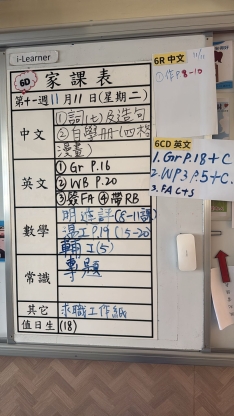 i-Learner
6D 家課表
第十一週 11月11日(星期二)
中文
①詞(七)及造句
②自學冊-(四格漫畫)
英文
① Gr P.16
② WB P.20
③簽FA ④帶RB
數學
明遊記(8-11課)
P.19 (15-20)
輔工(5)
常識
專題
其它
求職工作紙
值日生
(18)
6R 中文
11/11
P.8-10
6CD 英文
1. Gr P.18 + C
2. WP3 P.5 + C.
3. FACTS